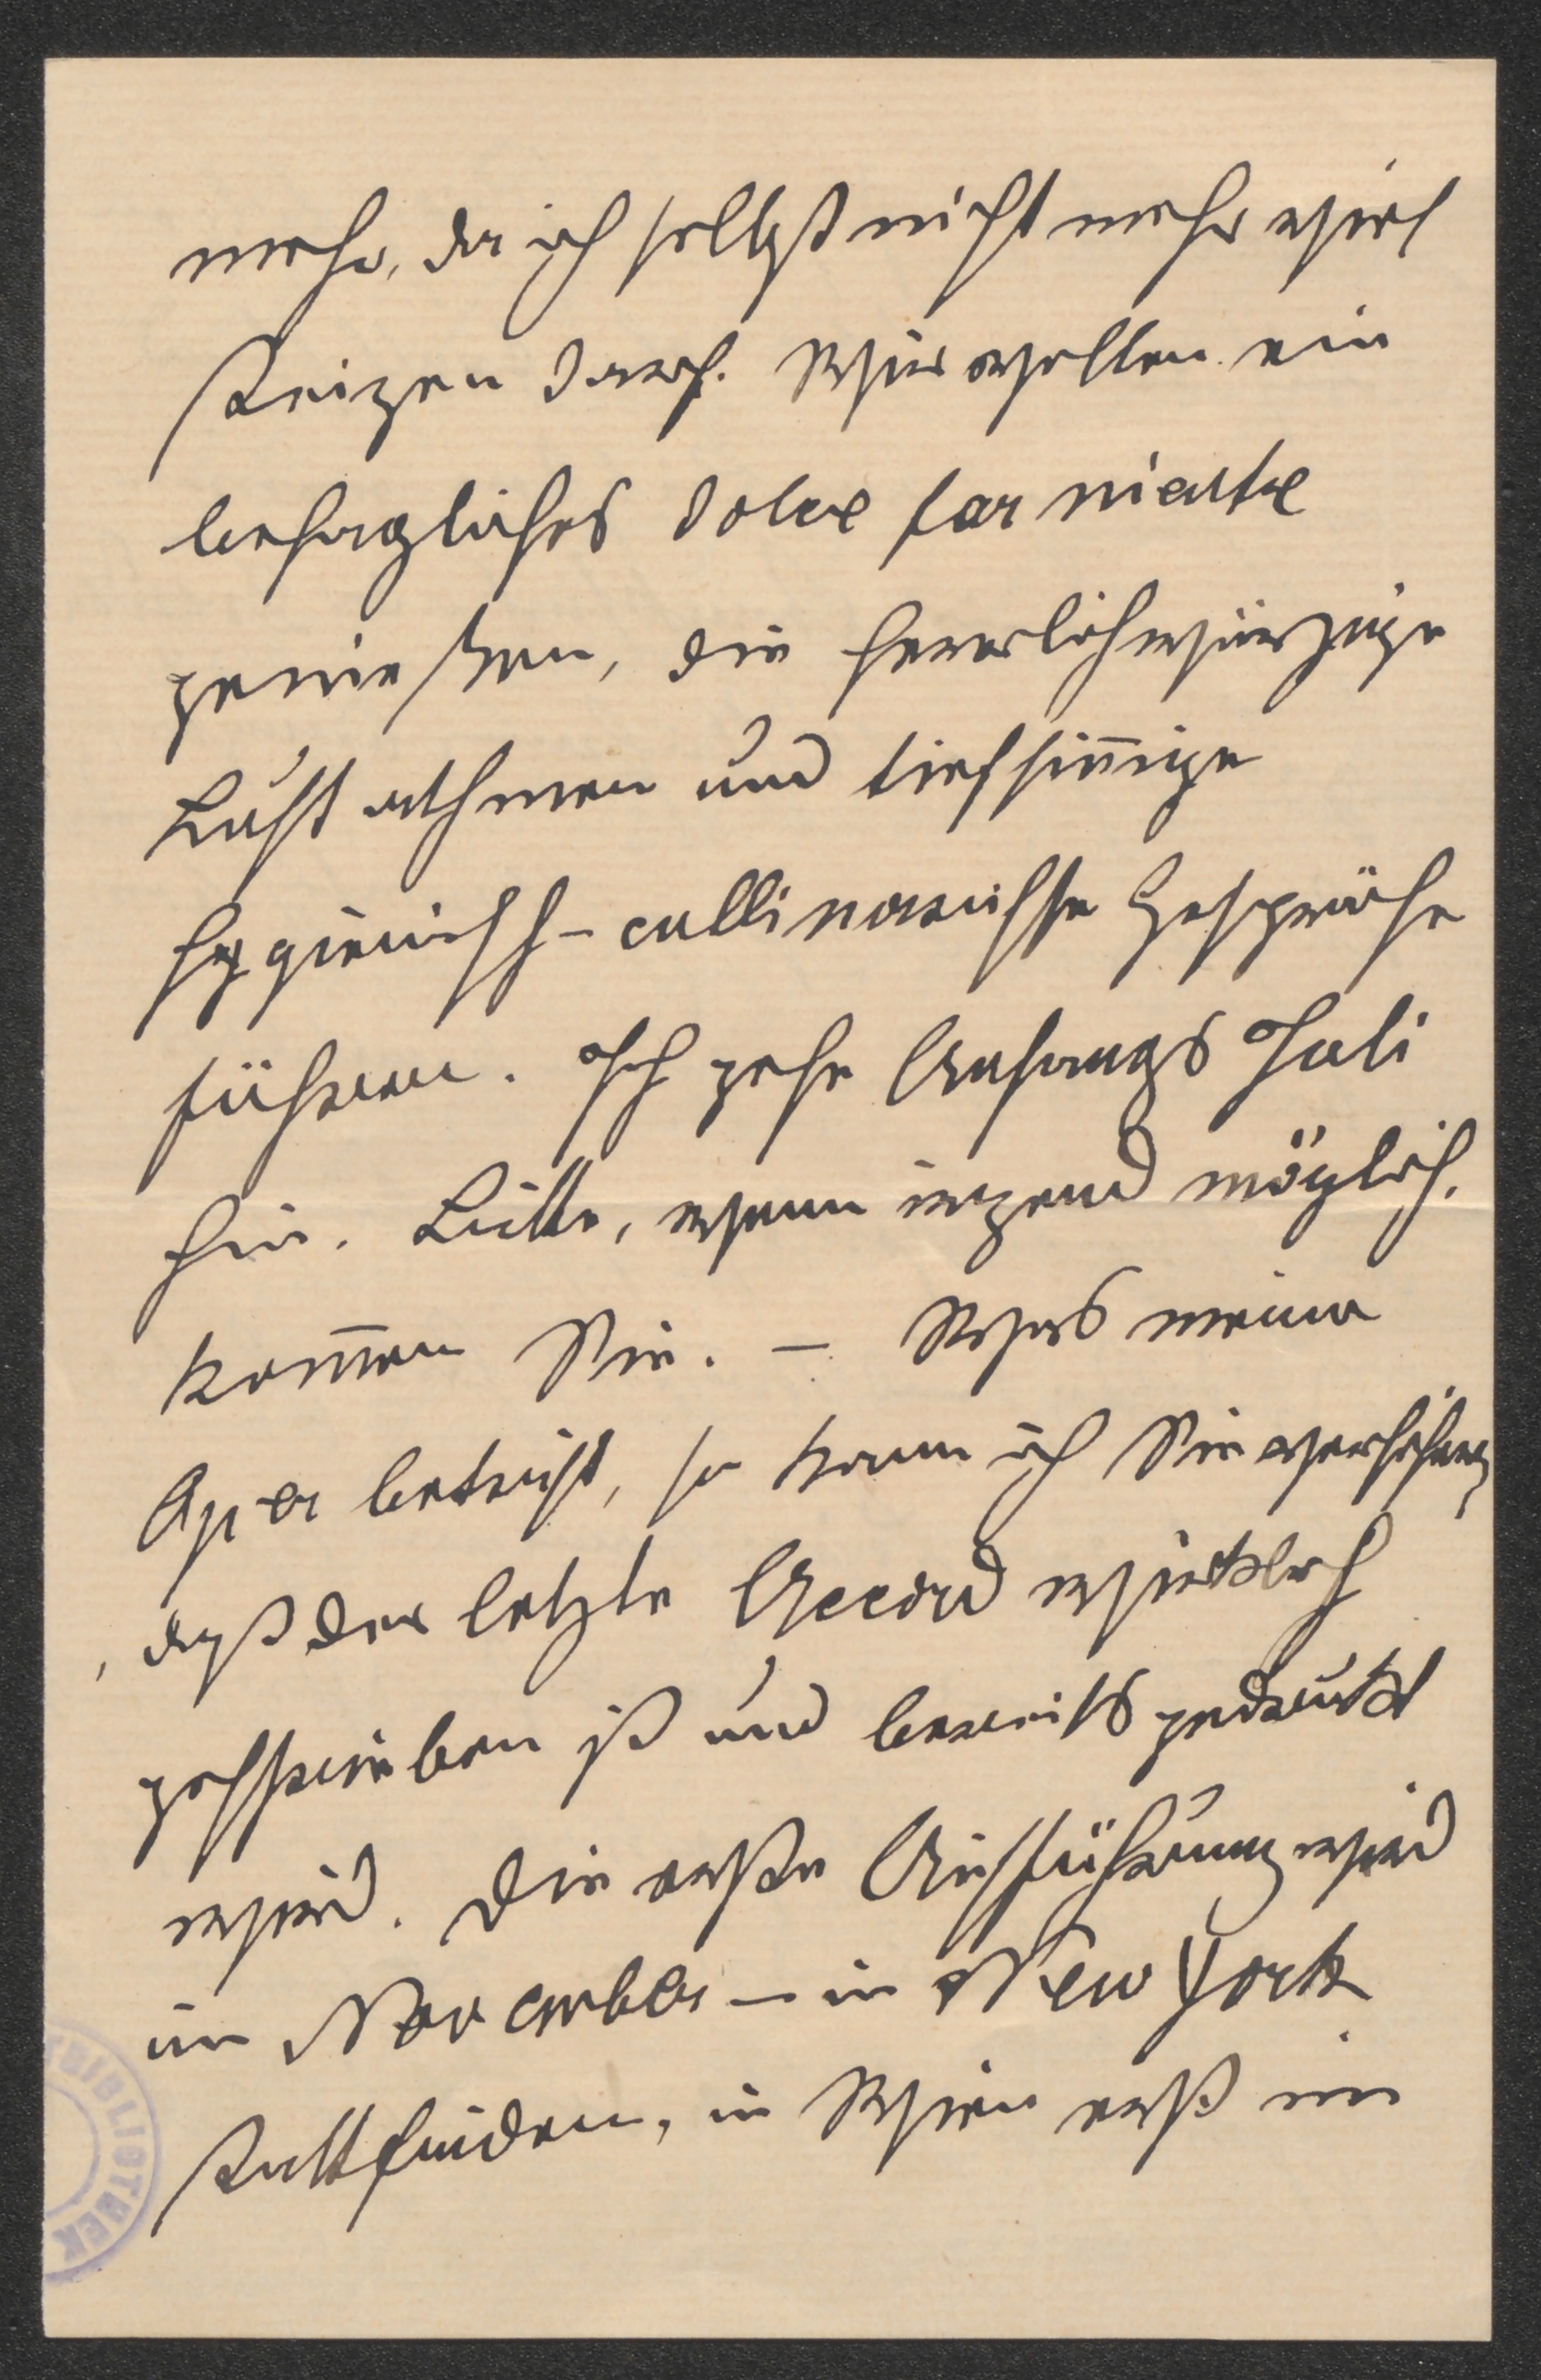 mehr, da ich selbst nicht mehr viel
steigen darf. Wir wollen ein
behagliches dolce far niente
genießen, die herrlich würzige
Luft athmen und tiefsin̅ige
hygienisch-cullinarische Gespräche
führen. Ich gehe Anfangs Juli
hin. Bitte, wenn irgend möglich,
kom̅en Sie. – Was meine
Oper betrifft, so kann ich Sie versichern,
daß der letzte Accord wirklich
geschrieben ist und bereits gedruckt
wird. Die erste Aufführung wird
im November – in New York
stattfinden, in Wien erst im
BIBLIOTHEK